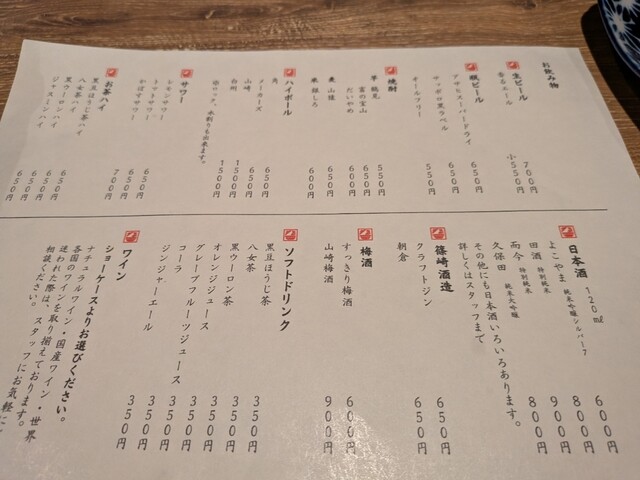 お飲み物
生ビール
香るエール 700円
小 550円
瓶ビール
アサヒスーパードライ 650円
サッポロ黒ラベル 650円
オールフリー 550円
焼酎
芋 鶴見 550円
富の宝山 650円
だいやめ 600円
麦 山猿 650円
米 銀しろ 600円
ハイボール
角 650円
メーカーズ 650円
山崎 1500円
白州 1500円
※ロック、水割りも出来ます。
サワー
レモンサワー 650円
トマトサワー 650円
かぼすサワー 700円
お茶ハイ
黒豆ほうじ茶ハイ 650円
八女茶ハイ 650円
黒ウーロンハイ 650円
ジャスミンハイ 650円
日本酒 120㎖
よこやま 純米吟醸シルバー7 600円
田酒 特別純米 800円
而今 特別純米 900円
久保田 純米大吟醸 800円
その他にも日本酒いろいろあります。
詳しくはスタッフまで
篠崎酒造
クラフトジン 650円
朝倉 650円
梅酒
すっきり梅酒 600円
山崎梅酒 900円
ソフトドリンク
黒豆ほうじ茶 350円
八女茶 350円
黒ウーロン茶 350円
オレンジジュース 350円
グレープフルーツジュース 350円
コーラ 350円
ジンジャーエール 350円
ワイン
ショーケースよりお選びください。
ナチュラルワイン・国産ワイン・世界
各国のワインを取り揃えております。
迷われた際は、スタッフにお気軽に
相談ください。